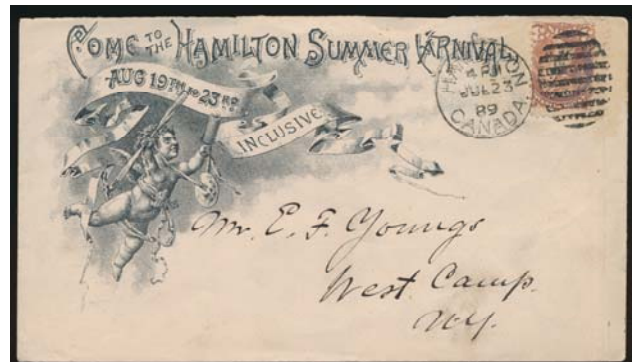 COME TO THE HAMILTON SUMMER CARNIVAL
AUG 19TH TO 23RD
INCLUSIVE
HAMILTON
4 PM
JUL 23
89
CANADA
Mr. E. F. Youngs
West Camp.
NY.